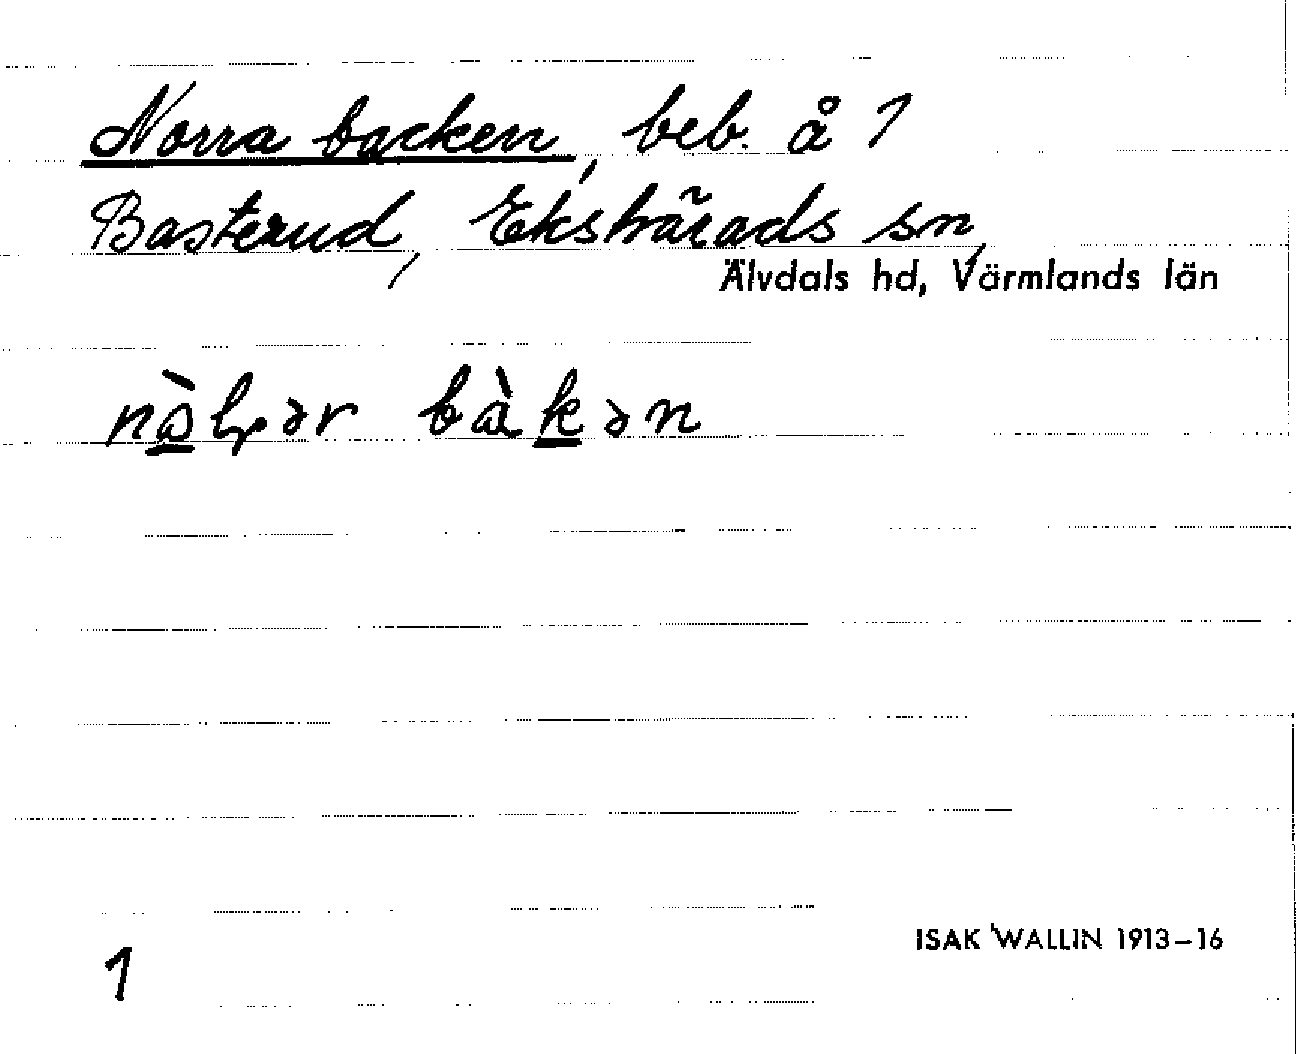 Norra backen, beb. å 1
Basterud, Ekshärads sn,
Älvdals hd, Värmlands län
bàkən
1
ISAK WALLIN 1913–16